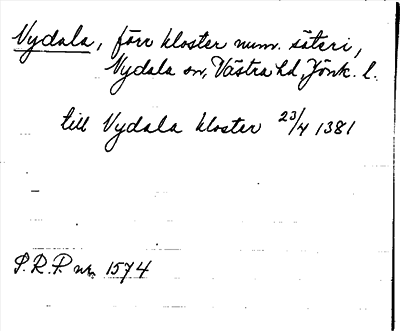 Nydala, förr kloster num. säteri,
Nydala sn, Västra hd, Jönk. l.
till Nydala kloster 23/4 1381
P.R.P. nr. 1574